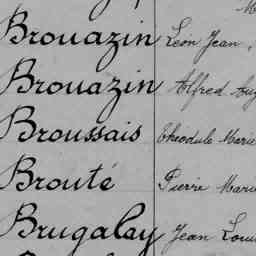 Brouazin Léon Jean,
Brouazin Alfred Aug
Broussais Théodule Marie
Brouté Pierre Marie
Brugaley Jean Loui